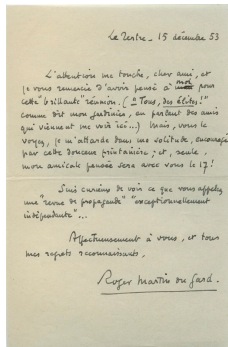 Le Tertre - 15 décembre 53
L'attention me touche, cher ami, et
je vous remercie d'avoir pensé à moi pour
cette "brillante" réunion. ("Tous, des élites!"
comme dit mon jardinier, en parlant des amis
qui viennent me voir ici...) Mais, vous le
voyez, je m'attarde dans ma solitude, encouragé
par cette douceur printanière; et, seule,
mon amicale pensée sera avec vous le 17!
Suis curieux de voir ce que vous appelez
une "revue de propagande" "exceptionnellement
indépendante"...
Affectueusement à vous, et tous
mes regrets reconnaissants,
Roger Martin du Gard.